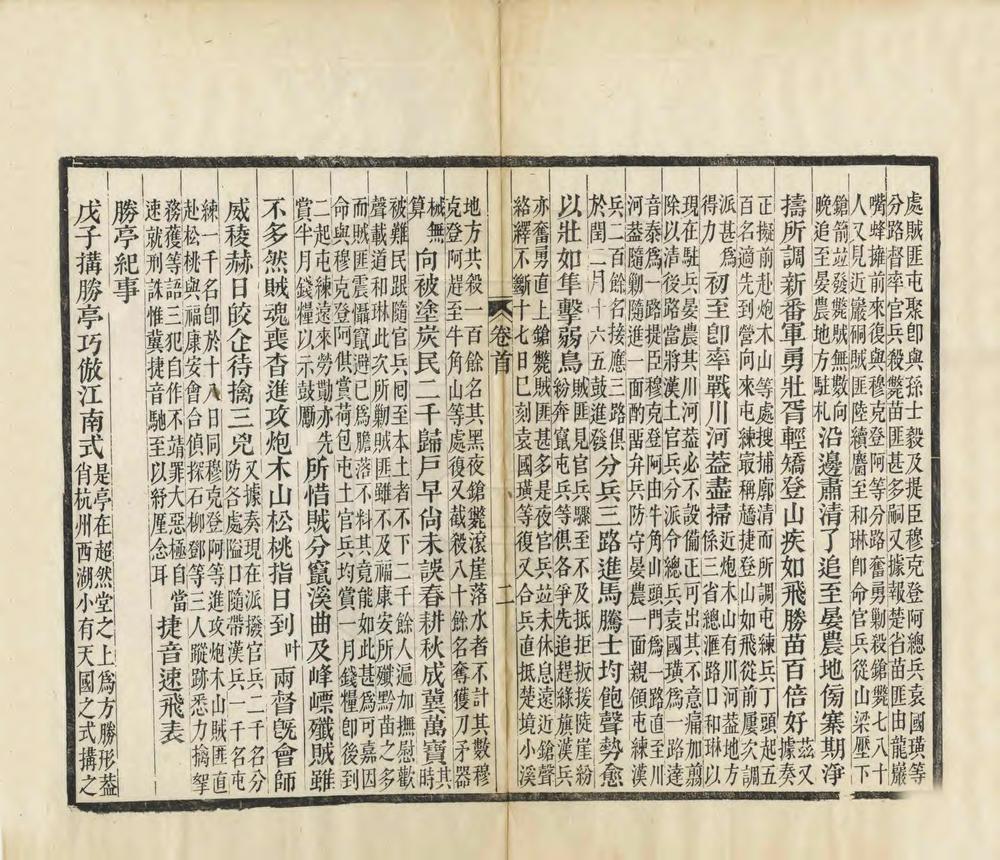 處賊匪屯聚卽與孫士毅及提臣穆克登阿總兵袁國璜等
分路督率官兵殺斃苗匪甚多嗣又據報楚省苗匪由龍巖
嘴蜂擁前來復與穆克登阿等分路奮勇勦殺鎗斃七八十
人又見近巖峒賊匪陸續麕至和琳卽命官兵從山梁壓下
鎗箭並發斃賊無數向
晚追至晏農地方駐札
沿邊肅清了追至晏農地傍寨期淨
擣所調新番軍勇壯胥輕矯登山疾如飛勝苗百倍好
茲又
據奏
正擬前赴炮木山等處搜捕廓清而所調屯練兵丁頭起五
百名適先到營向來屯練冣稱趫捷登山如飛從前屢次調
派甚爲
得力
初至卽率戰川河葢盡掃
近炮木山有川河葢地方
係三省總滙路口和琳以
現在駐兵晏農其川河葢必不設備正可出其不意痛加翦
除以清後路當將漢土官兵分派令總兵袁國璜爲一路達
音泰爲一路提臣穆克登阿由牛角山頭門爲一路直至川
河葢隨勦隨進一面酌留弁兵防守晏農一面親領屯練土
兵二百餘名接應三路俱
於閏二月十六五鼓進發
分兵三路進馬騰士均飽聲勢愈
以壯如隼擊弱鳥
賊匪見官兵驟至不及抵拒扳援陡崖紛
紛奔竄屯兵等俱各爭先追趕綠旗漢兵
亦奮勇直上鎗斃賊匪甚多是夜官兵並未休息遠近鎗聲
絡繹不斷十七日巳刻袁國璜等復又合兵直抵楚境小溪
卷首
二
地方共殺一百餘名其黑夜鎗斃滾崖落水者不計其數穆
克登阿趕至牛角山等處復又截殺八十餘名奪獲刀矛器
械無
算
向被塗炭民二千歸戸早尙未誤春耕秋成冀萬寶
其
時
被難民跟隨官兵囘至本土者不下二千餘人遍加撫慰歡
聲載道和琳此次所勦賊匪雖不及福康安所殲黔苗之多
而賊匪震懾竄避已爲膽落不料其竟能如此甚爲可嘉因
命與穆克登阿俱賞荷包屯土官兵均賞一月錢糧卽後到
二起屯練遠來勞勩亦先
賞半月錢糧以示鼓勵
所惜賊分竄溪曲及峰嶛殲賊雖
不多然賊魂喪杳進攻炮木山松桃指日到
叶
兩督旣會師
威稜赫日皎仝待擒三兇
又據奏現在派撥官兵二千名分
防各處隘口隨帶漢兵一千名屯
練一千名卽於十八日同穆克登阿等進攻炮木山賊匪直
赴松桃與福康安會合偵探石柳鄧等三人蹤跡悉力擒拏
務獲等語三犯自作不靖罪大惡極自當
速就刑誅惟冀捷音馳至以紓厪念耳
捷音速飛表
勝亭紀事
戊子搆勝亭巧倣江南式
是亭在超然堂之上爲方勝形葢
肖杭州西湖小有天園之式搆之